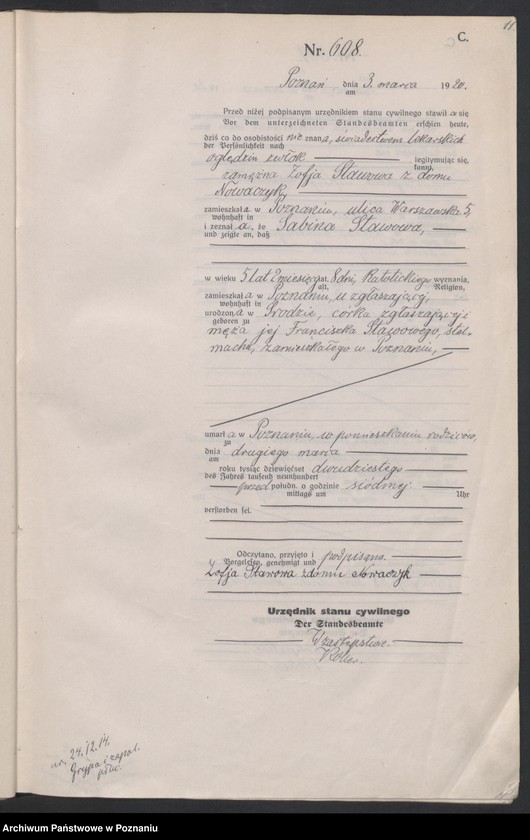 11
C.
Nr. 608.
Poznań, dnia 3. marca 1920.
am
Przed niżej podpisanym urzędnikiem stanu cywilnego stawił a się
Vor dem unterzeichneten Standesbeamten erschien heute,
dziś co do osobistości nie znana, świadectwem lekarskich
der Persönlichkeit nach
oględzin zwłok legitymując się,
kannt,
zamężna Zofja Stawowa z domu
Nowaczyk,
zamieszkał a w Poznaniu, ulica Warszawska 5,
wohnhaft in
i zeznał a, że Sabina Stawowa,
und zeigte an, daß
w wieku 5 lat 2 miesięcy 8 dni, katolickiego wyznania,
alt, Religion,
zamieszkał a w Poznaniu, u zgłaszającej,
wohnhaft in
urodzon a w Środzie, córka zgłaszającej i
geboren zu
męża jej Franciszka Stawowego, stel-
macha, zamieszkałego w Poznaniu,
umarł a w Poznaniu, w pomieszkaniu rodziców,
zu
dnia drugiego marca
am
roku tysiąc dziewięćset dwudziestego
des Jahres tausend neunhundert
przed połudn. o godzinie siódmej
mittags um Uhr
verstorben sei.
Odczytano, przyjęto i podpisano.
Vorgelesen, genehmigt und
Zofja Stawowa z domu Nowaczyk
Urzędnik stanu cywilnego
Der Standesbeamte
W zastępstwie.
ur. 24.12.14.
Grypa i zapal.
płuc.
Archiwum Państwowe w Poznaniu